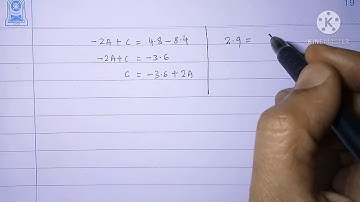 -2A + C = 4.8 - 8.4
-2A + C = -3.6
C = -3.6 + 2A
2.9 =
KINEMASTER
19